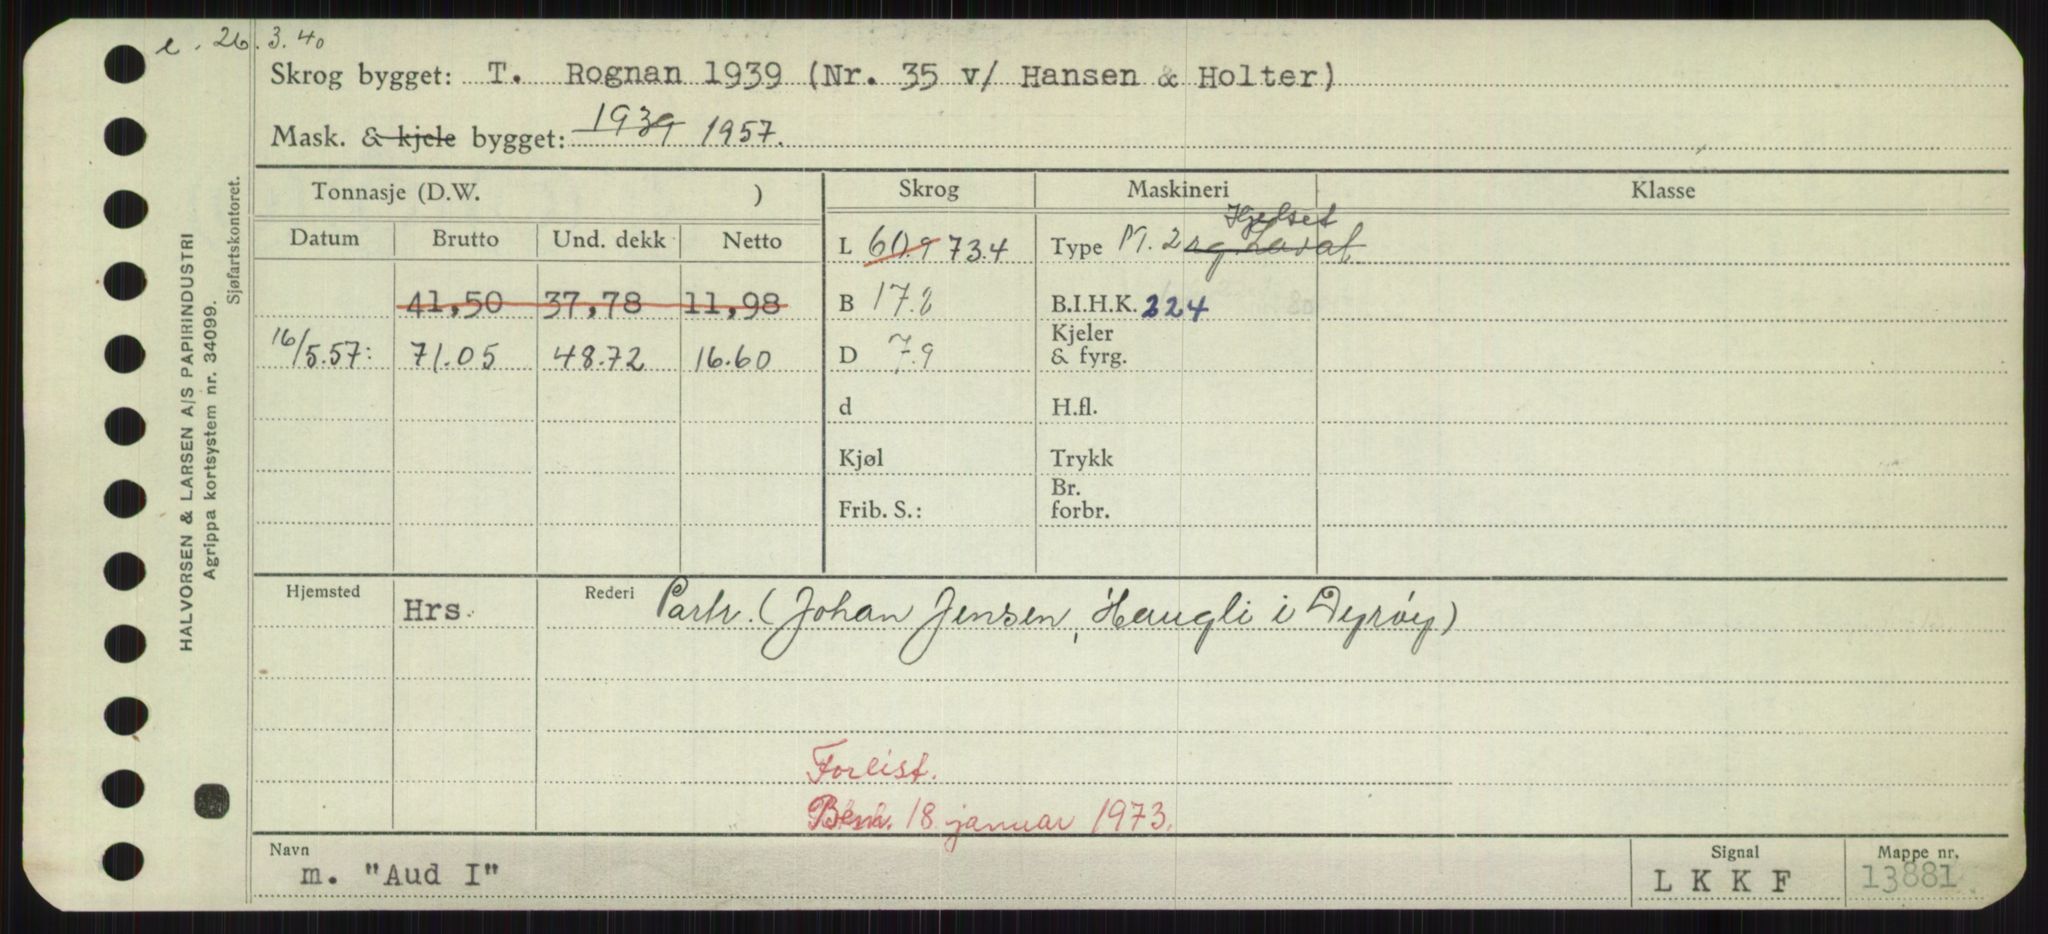 e. 26.3.40
Skrog bygget: T. Rognan 1939 (Nr. 35 v/ Hansen & Holter)
Mask. & kjele bygget: 1939 1957.
Tonnasje (D.W. ) Skrog Maskineri Klasse
Datum Brutto Und. dekk Netto
L 60.9 73.4 Type M. 2 Hjelset
41,50 37,78 11,98 B 17.2 B.I.H.K. 224
16/5.57: 71.05 48.72 16.60 D 7.9 Kjeler
& fyrg.
d H.fl.
Kjøl Trykk
Frib. S.: Br.
forbr.
Hjemsted Hrs. Rederi Partr. (Johan Jensen, Haugli i Dyrøy)
Forlist.
18 januar 1973.
Navn Signal Mappe nr.
m. "Aud I" L K K F 13881
HALVORSEN & LARSEN A/S PAPIRINDUSTRI
Agrippa kortsystem nr. 34099.
Sjøfartskontoret.